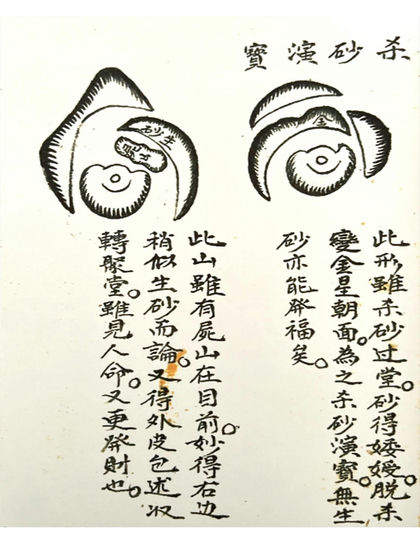 杀砂演寶
金
此形雖杀砂过堂。砂得婑媛。脱杀
變金星朝面。為之杀砂演寶。無生
砂亦能発福矣。
生砂
此山雖有屍山在目前妙得右边。
稍似生砂而論。又得外皮包述
轉聚堂。雖見人命。又更発財也。